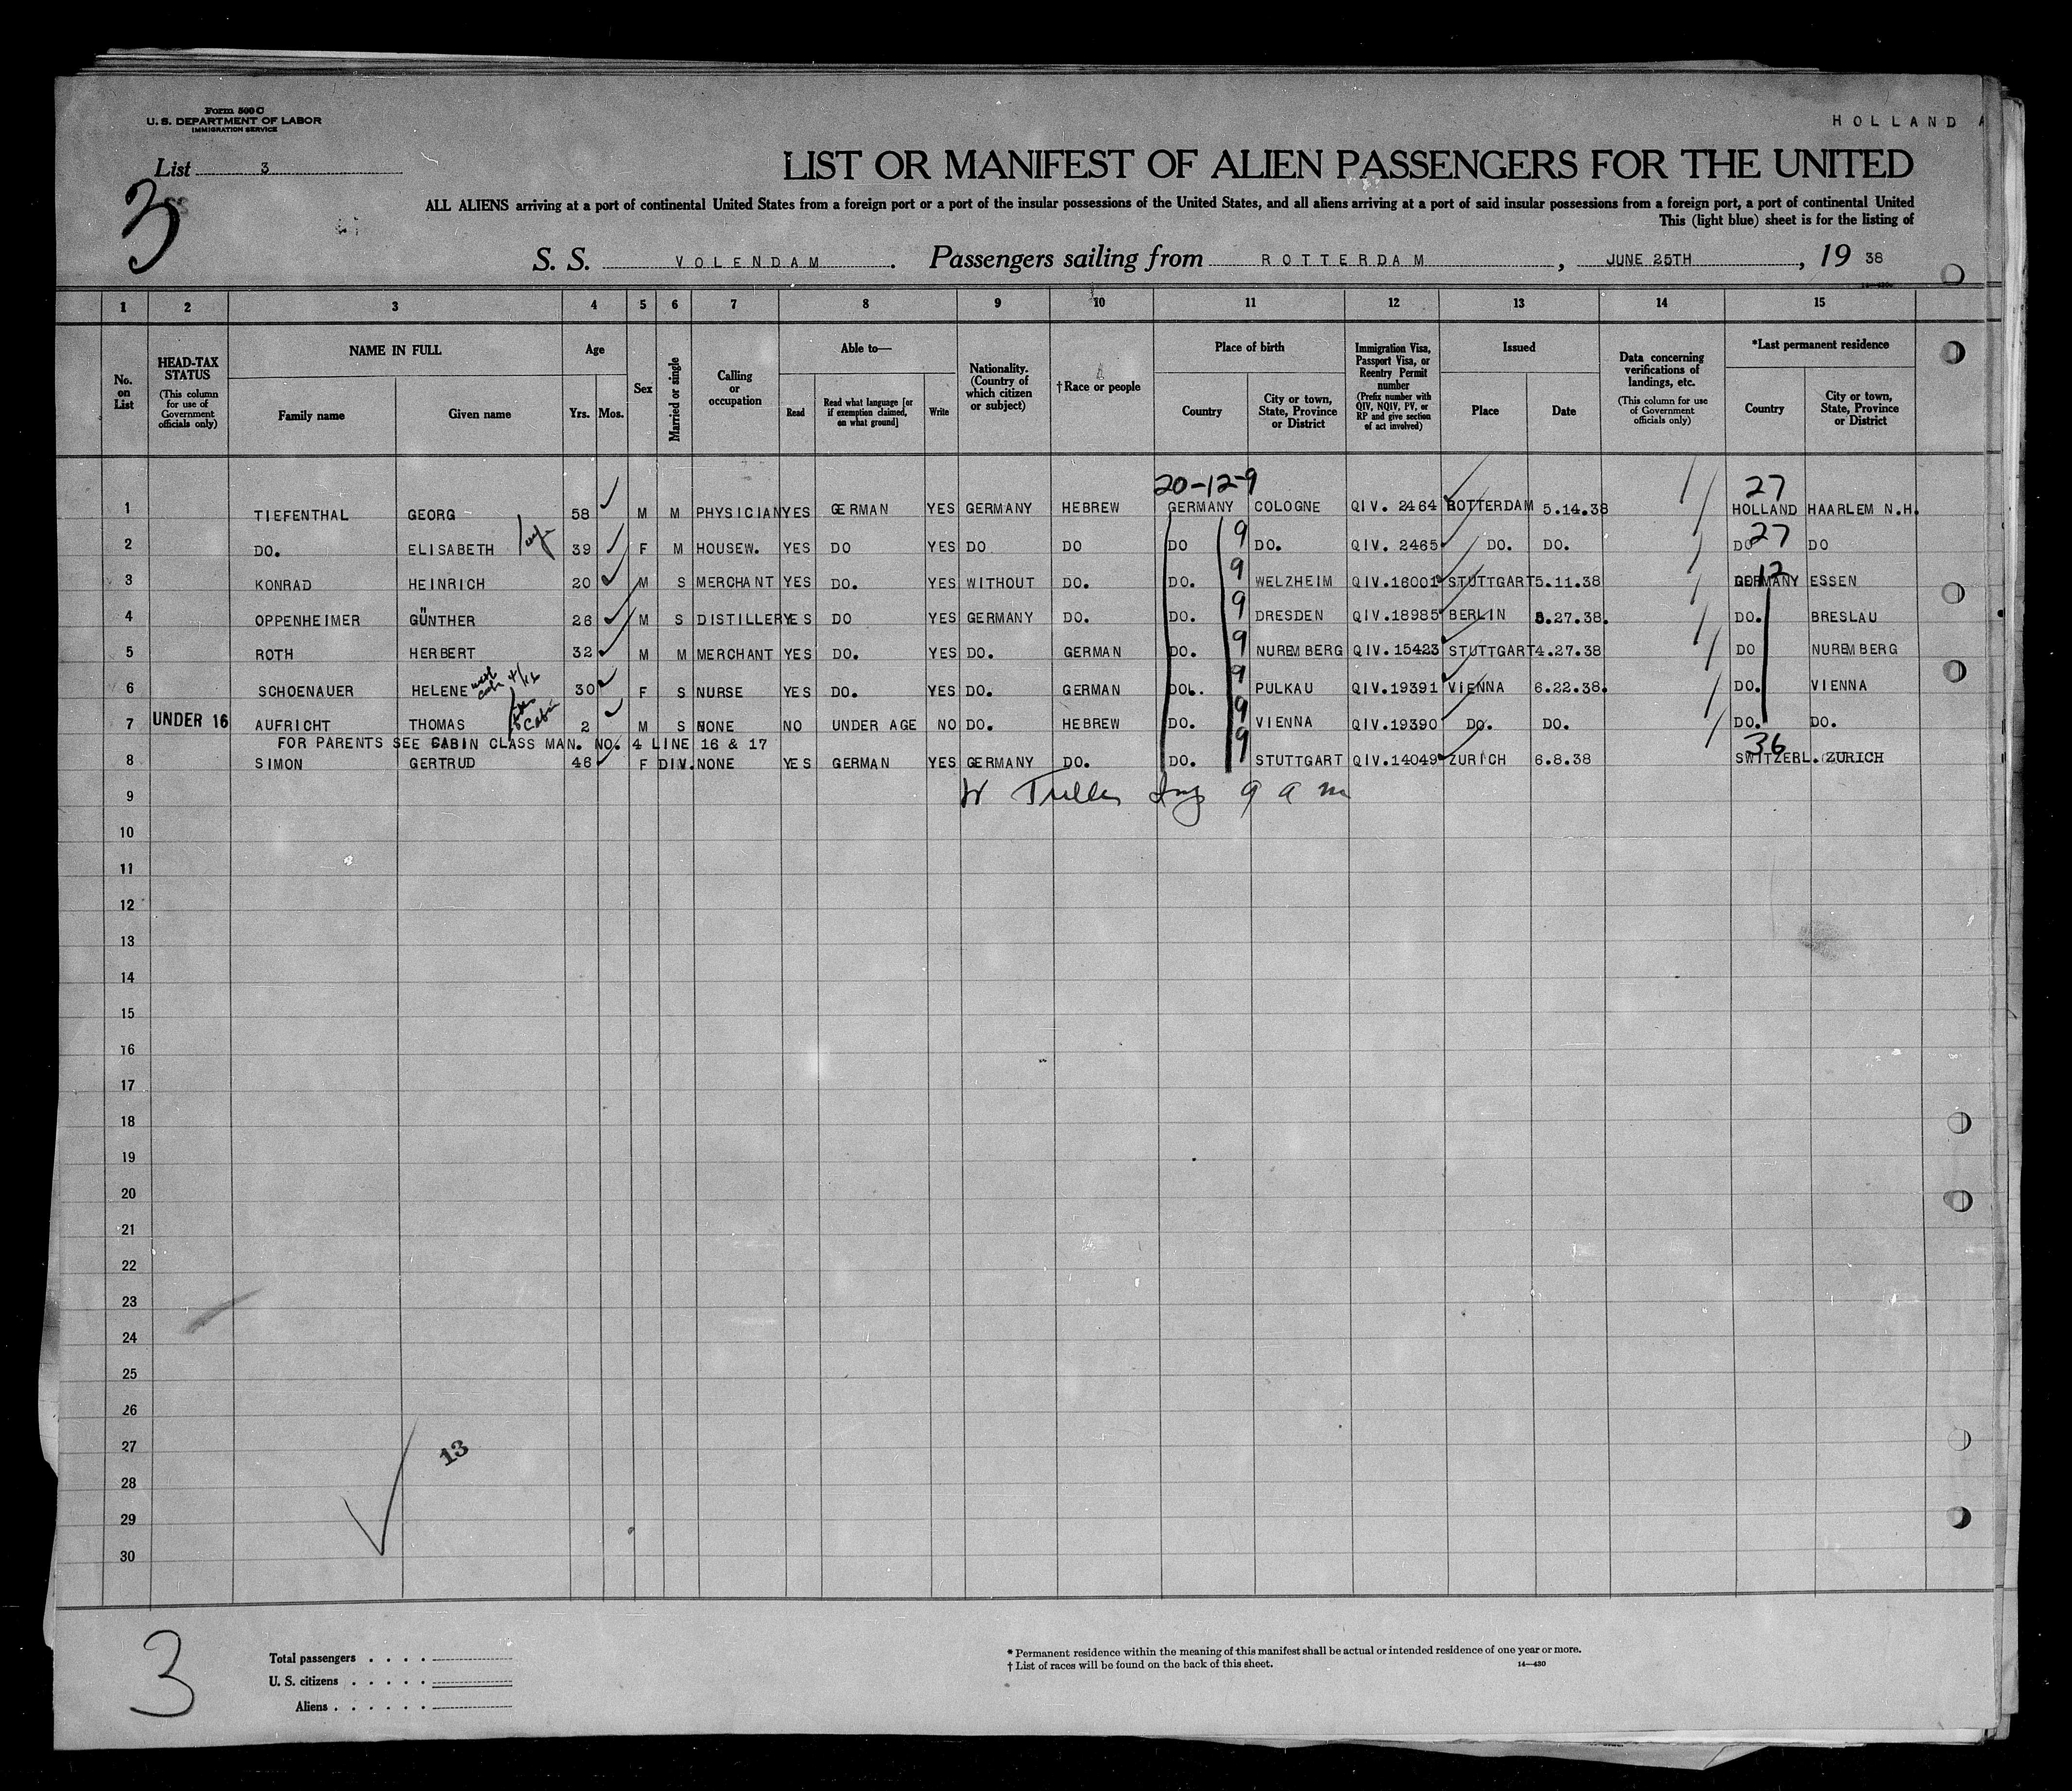 Form 500 C
U. S. DEPARTMENT OF LABOR
IMMIGRATION SERVICE
HOLLAND A
List 3
3
LIST OR MANIFEST OF ALIEN PASSENGERS FOR THE UNITED
ALL ALIENS arriving at a port of continental United States from a foreign port or a port of the insular possessions of the United States, and all aliens arriving at a port of said insular possessions from a foreign port, a port of continental United
This (light blue) sheet is for the listing of
S. S. VOLENDAM. Passengers sailing from ROTTERDAM, JUNE 25TH, 19 38
1 2 3 4 5 6 7 8 9 10 11 12 13 14 15
No. on List
HEAD-TAX STATUS (This column for use of Government officials only)
NAME IN FULL Family name Given name
Age Yrs. Mos.
Sex
Married or single
Calling or occupation
Able to— Read Read what language [or if exemption claimed, on what ground] Write
Nationality. (Country of which citizen or subject)
†Race or people
Place of birth Country City or town, State, Province or District
Immigration Visa, Passport Visa, or Reentry Permit number (Prefix number with QIV, NQIV, PV, or RP and give section of act involved)
Issued Place Date
Data concerning verifications of landings, etc. (This column for use of Government officials only)
*Last permanent residence Country City or town, State, Province or District
20-12-9 27
1 TIEFENTHAL GEORG 58 M M PHYSICIAN YES GERMAN YES GERMANY HEBREW GERMANY COLOGNE QIV. 2464 ROTTERDAM 5.14.38 HOLLAND HAARLEM N.H.
2 DO. ELISABETH 39 F M HOUSEW. YES DO YES DO DO DO 9 DO. QIV. 2465 DO. DO. DO 27 DO
3 KONRAD HEINRICH 20 M S MERCHANT YES DO. YES WITHOUT DO. DO. 9 WELZHEIM QIV.16001 STUTTGART 5.11.38 GERMANY 12 ESSEN
4 OPPENHEIMER GÜNTHER 26 M S DISTILLER YES DO YES GERMANY DO. DO. 9 DRESDEN QIV.18985 BERLIN 5.27.38. DO. BRESLAU
5 ROTH HERBERT 32 M M MERCHANT YES DO. YES DO. GERMAN DO. 9 NUREMBERG QIV.15423 STUTTGART 4.27.38 DO NUREMBERG
6 SCHOENAUER HELENE 30 F S NURSE YES DO. YES DO. GERMAN DO. 9 PULKAU QIV.19391 VIENNA 6.22.38. DO. VIENNA
7 UNDER 16 AUFRICHT THOMAS Cabin 2 M S NONE NO UNDER AGE NO DO. HEBREW DO. 9 VIENNA QIV.19390 DO. DO. DO. DO.
FOR PARENTS SEE CABIN CLASS MAN. NO. 4 LINE 16 & 17
8 SIMON GERTRUD 46 F DIV. NONE YES GERMAN YES GERMANY DO. DO. 9 STUTTGART QIV.14049 ZURICH 6.8.38 36 SWITZERL. ZURICH
9
10
11
12
13
14
15
16
17
18
19
20
21
22
23
24
25
26
27 13
28
29
30
3
Total passengers
U. S. citizens
Aliens
* Permanent residence within the meaning of this manifest shall be actual or intended residence of one year or more.
† List of races will be found on the back of this sheet.
14—430